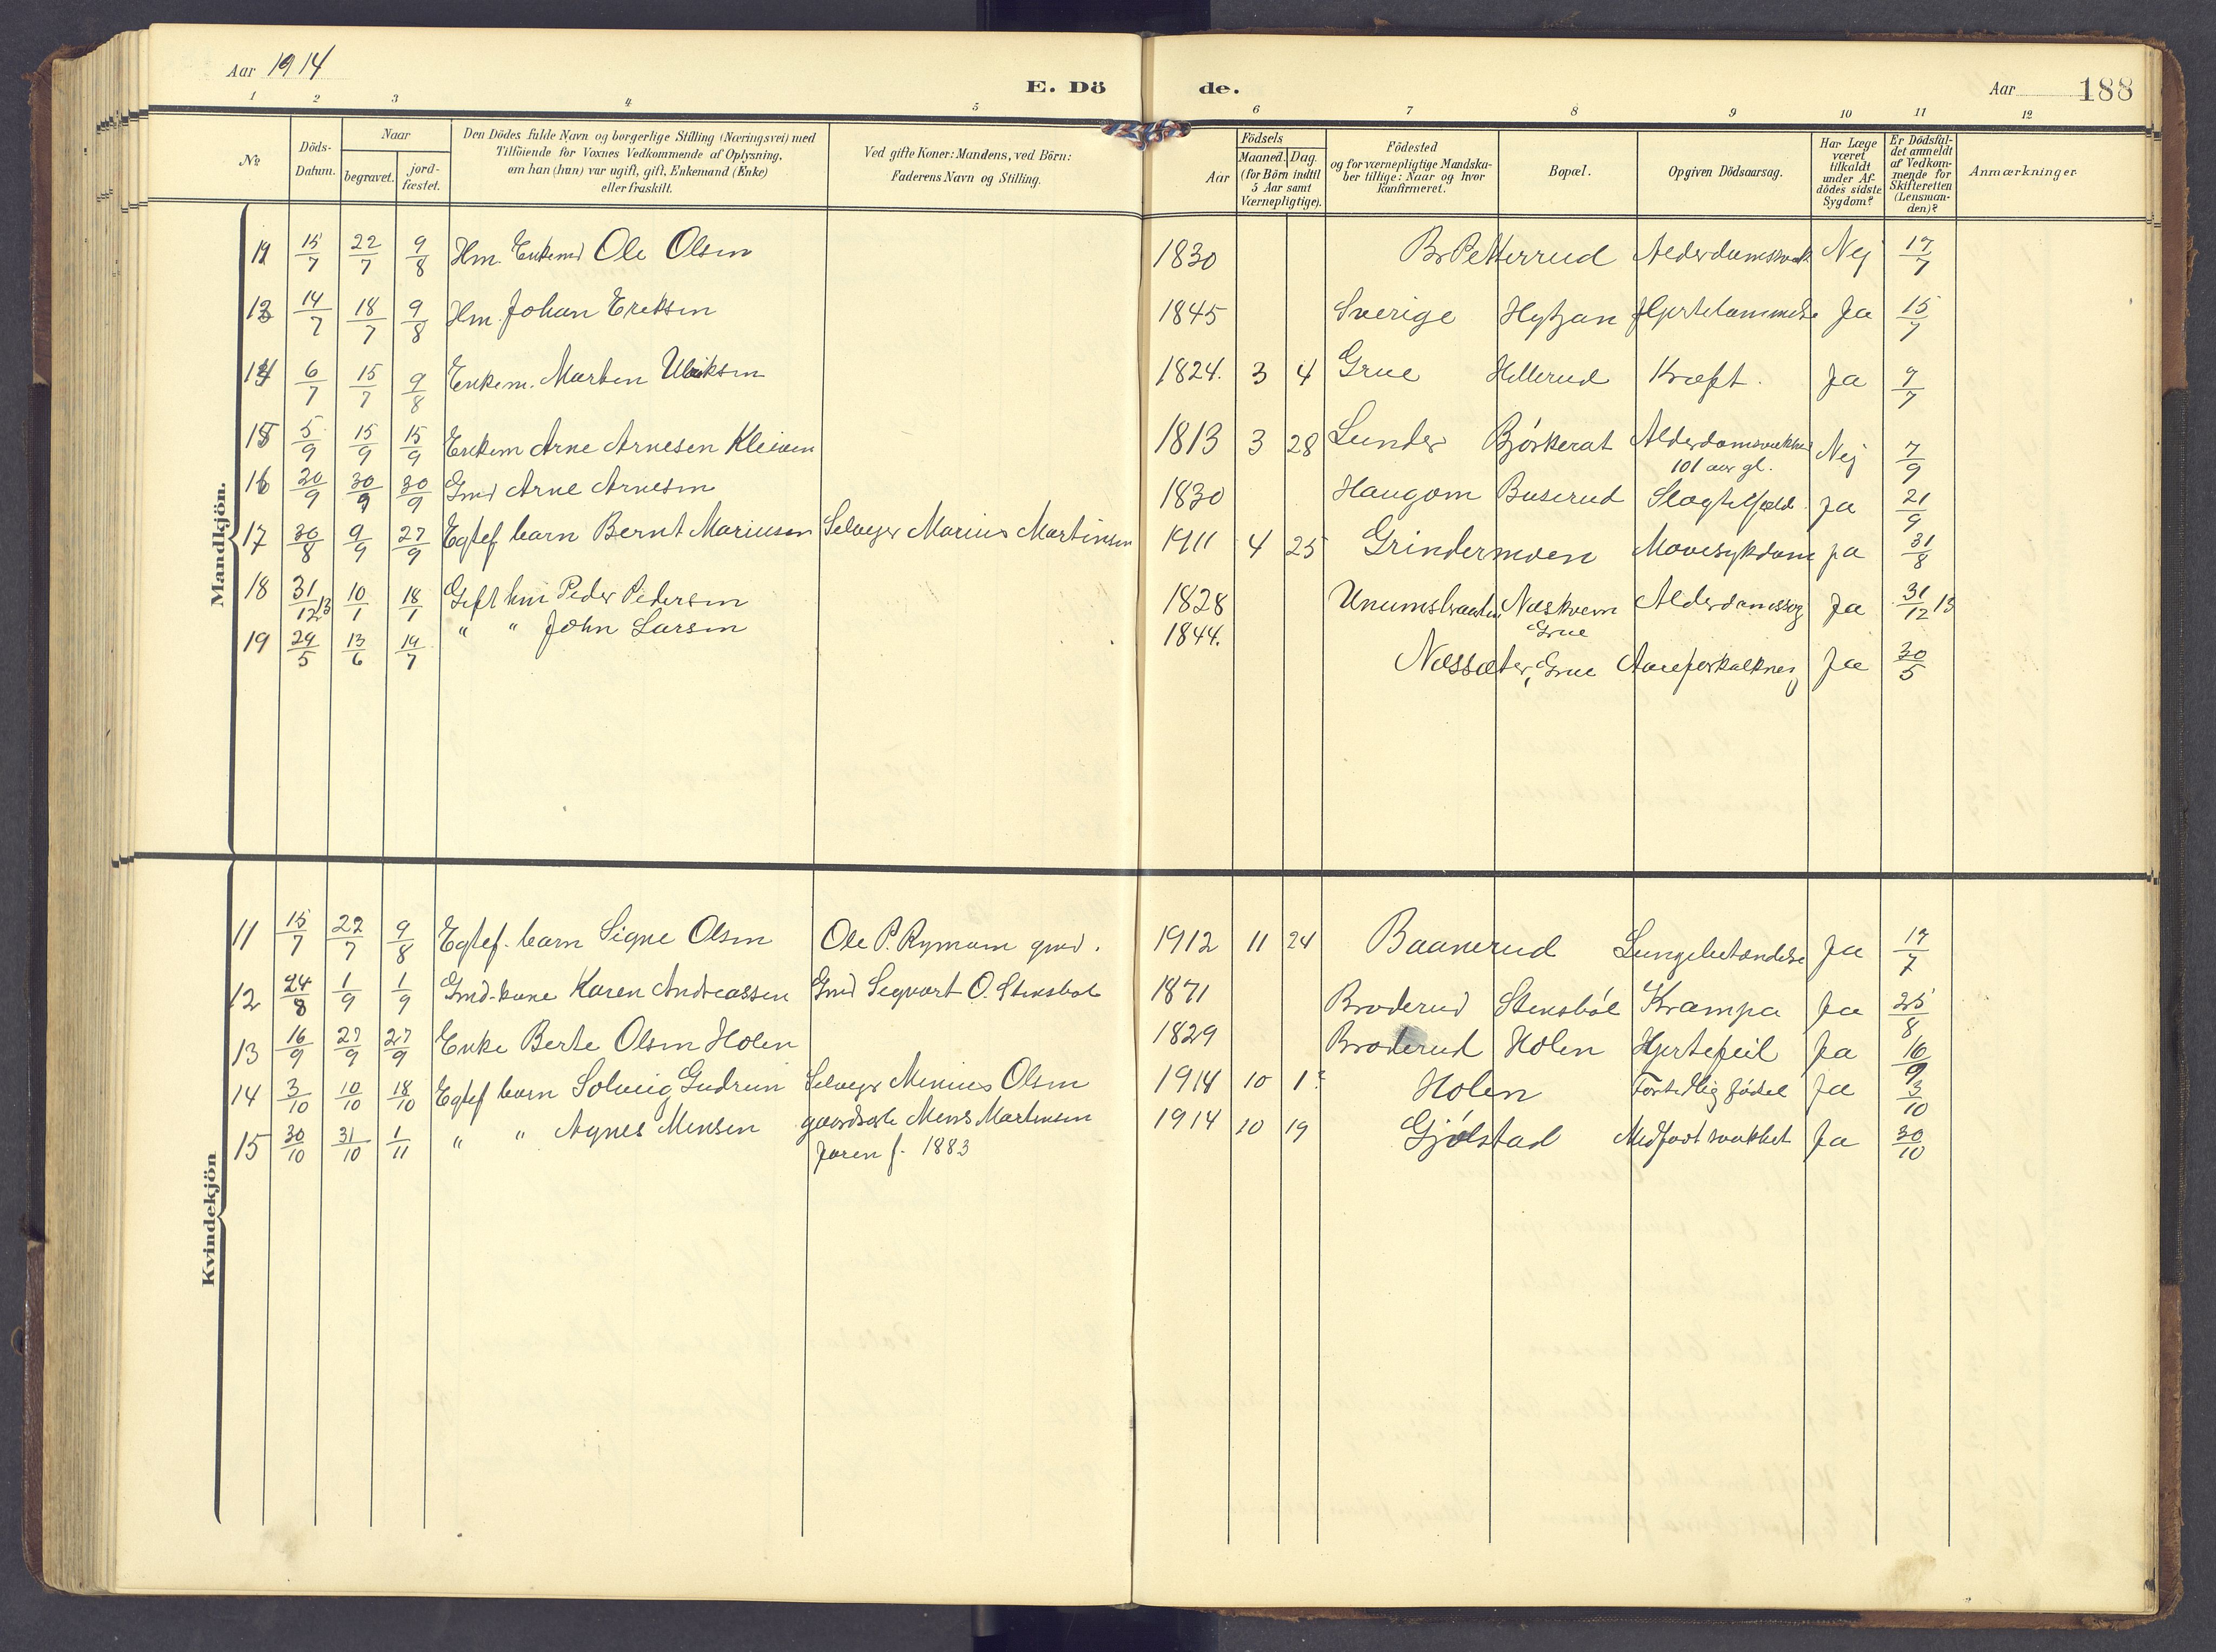 Aar 1914
E. Dö de.
Aar 188
1 2 3 4 5 6 7 8 9 10 11 12
№
Döds-Datum.
Naar
begravet.
jord-fæstet.
Den Dödes fulde Navn og borgerlige Stilling (Næringsvei) med
Tilföiende for Voxnes Vedkommende af Oplysning,
om han (hun) var ugift, gift, Enkemand (Enke)
eller fraskilt.
Ved gifte Koner: Mandens, ved Börn:
Faderens Navn og Stilling.
Födsels
Aar
Maaned. Dag.
(for Börn indtil
5 Aar samt
Værnepligtige).
Födested
og for værnepligtige Mandska-
ber tillige: Naar og hvor
konfirmeret.
Bopæl.
Opgiven Dödsaarsag.
Har Læge
været
tilkaldt
under Af-
dödes sidste
Sygdom?
Er Dödsfal-
det anmeldt
af Vedkom-
mende for
Skifteretten
(Lensman-
den)?
Anmærkninger
Mandkjön.
12 15/7 22/7 9/8 Hm. Enkemd Ole Olsen 1830 Br Petterrud Alderdomssvak Nej 17/7
13 14/7 18/7 9/8 Hm. Johan Eriksen 1845 Sverige Hytjan Hjertelammelse Ja 15/7
14 6/7 15/7 9/8 Enkem. Marten Ulriksen 1824. 3 4 Grue Hellerud Kræft. Ja 9/7
15 5/9 15/9 15/9 Enkem Arne Arnesen Kleiven 1813 3 28 Lunder Björkerat Alderdomsvakhet Nej 7/9
101 aar gl.
16 20/9 30/9 30/9 Gmd Arne Arnesen 1830 Haugom Buserud Slagtilfæld. Ja 21/9
17 30/8 9/9 27/9 Egtef barn Bernt Mariusen Selveger Marius Martinsen 1911 4 25 Grindermoen Mavesykdom ja 31/8
18 31/12 13 10/1 18/1 Gift hm Peder Pedersen 1828 Næskvern Ja 31/12 13
Grue
19 29/5 13/6 19/7 " " John Larsen 1844. Næssæter, Grue Aareforkalkning Ja 30/5
Kvindekjön
11 15/7 22/7 9/8 Egtef. barn Signe Olsen Ole P. Rymoen gmd. 1912 11 24 Baanerud Lungebetændelse Ja 17/7
12 24/8 1/9 1/9 Gmd-kone Karen Andreassen Gmd Segvart O. Stensbøl 1871 Broderud Stensböl Krampa Ja 25/8
13 16/9 27/9 27/9 Enke Berte Olsen Holen 1829 Broderud Holen Hjertefeil Ja 16/9
14 3/10 10/10 18/10 Egtef barn Solveig Gudrun Selveger Menius Olsen 1914 10 1? Holen Fortidlig födsel Ja 3/10
15 30/10 31/10 1/11 " " Agnes Mensen gaardsarb Mens Martinsen 1914 10 19 Gjölstad Medfødt svakhet Ja 30/10
Jaren f. 1883